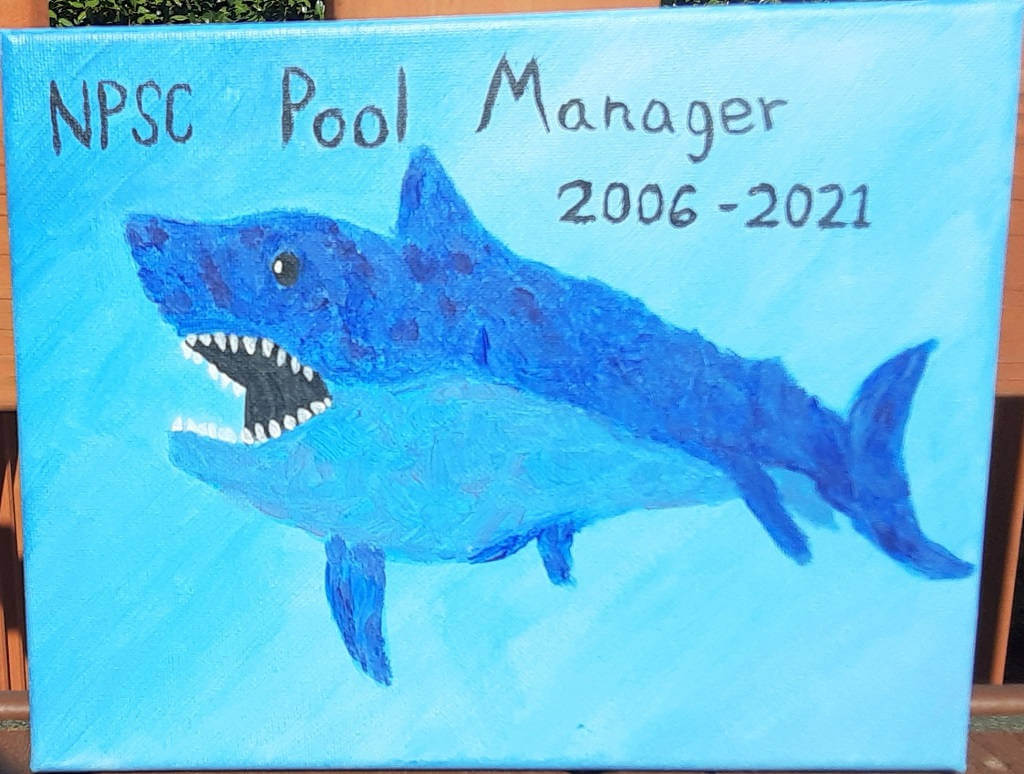 NPSC Pool Manager
2006-2021